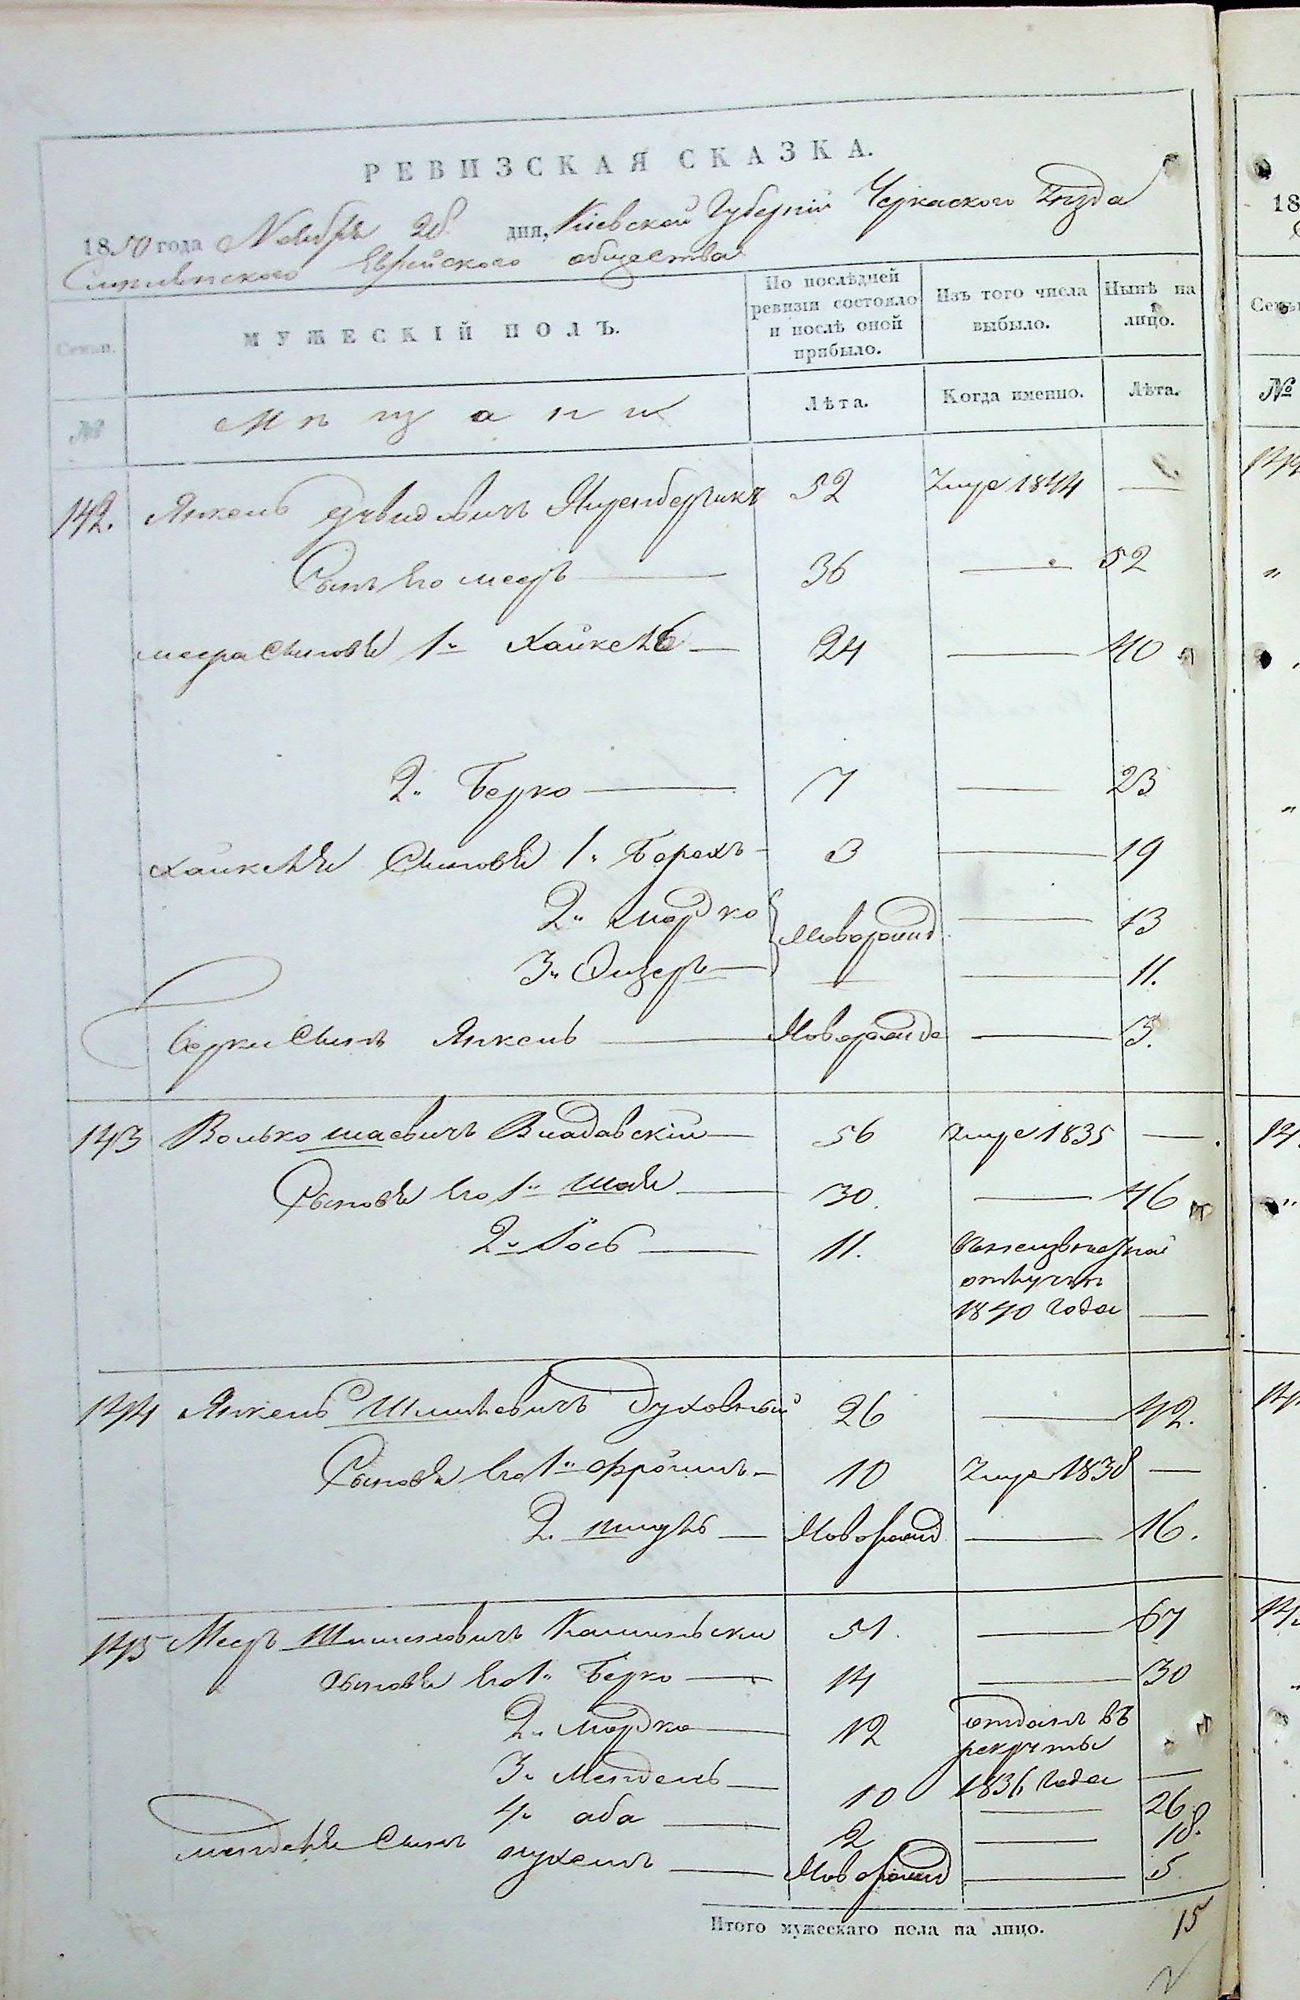 РЕВИЗСКАЯ СКАЗКА.
1850 года Ноября 28 дня, Кіевской Губерніи Черкаского Уѣзда
Смѣлянского Еврейского общества
Семьи. МУЖЕСКІЙ ПОЛЪ. По послѣдней ревизіи состояло и послѣ оной прибыло. Изъ того числа выбыло. Нынѣ на лицо.
№ Мѣщане Лѣта. Когда именно. Лѣта.
142. Янкель Дувидовичъ 52 Умре 1844 —
Сынъ его Меер 36 — 52
Меера Сыновья 1й Хайкель 24 — 40
2й Берко 7 — 23
Хайкеля Сыновья 1й Борохъ 3 — 19
2й Мордко Новорожд — 13
3й Лизеръ — — 11.
Берки Сынъ Янкель Новорожде — 3.
143 Волько Шаевичъ Владавскій 56 Умре 1835 —
Сыновья его 1й Шая 30. — 46
2й Іось 11. въ неизвестной отлучке 1840 года —
144 Янкель Шмилевичъ Духовный 26 — 42.
Сыновья его 1й Фроимъ 10 Умре 1838 —
2. Шмуль Новорожд — 16.
145 Меер 51. — 67
Сыновья его 1й Берко 14 — 30
2й Мордко 12 отданъ въ рекруты 1836 года —
3й Мендель 10 — 26
4й Аба 2 — 18.
Менделя Сынъ Нухемъ Новорожд — 5
Итого мужескаго пола на лицо. 15
18
Семьи
№